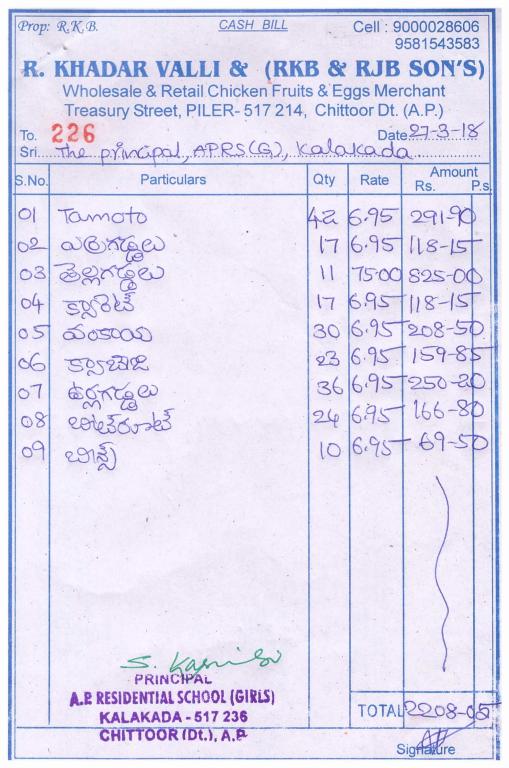 Prop: R.K.B. CASH BILL Cell : 9000028606
9581543583
R. KHADAR VALLI & (RKB & RJB SON'S)
Wholesale & Retail Chicken Fruits & Eggs Merchant
Treasury Street, PILER- 517 214, Chittoor Dt. (A.P.)
To. 226 Date 27-3-18
Sri. The principal, APRS(G), Kalakada
S.No. Particulars Qty Rate Amount
Rs. P.s.
01 Tamoto 42 6.95 291-90
02 ఎర్రగడ్డలు 17 6.95 118-15
03 తెల్లగడ్డలు 11 75-00 825-00
04 క్యారెట్ 17 6.95 118-15
05 వంకాయ 30 6.95 208-50
06 క్యాబేజి 23 6.95 159-85
07 ఉర్లగడ్డలు 36 6.95 250-20
08 బీట్‌రూట్ 24 6.95 166-80
09 బీన్స్ 10 6.95 69-50
PRINCIPAL
A.P. RESIDENTIAL SCHOOL (GIRLS)
KALAKADA - 517 236
CHITTOOR (Dt.), A.P.
TOTAL 2208-05
Signature